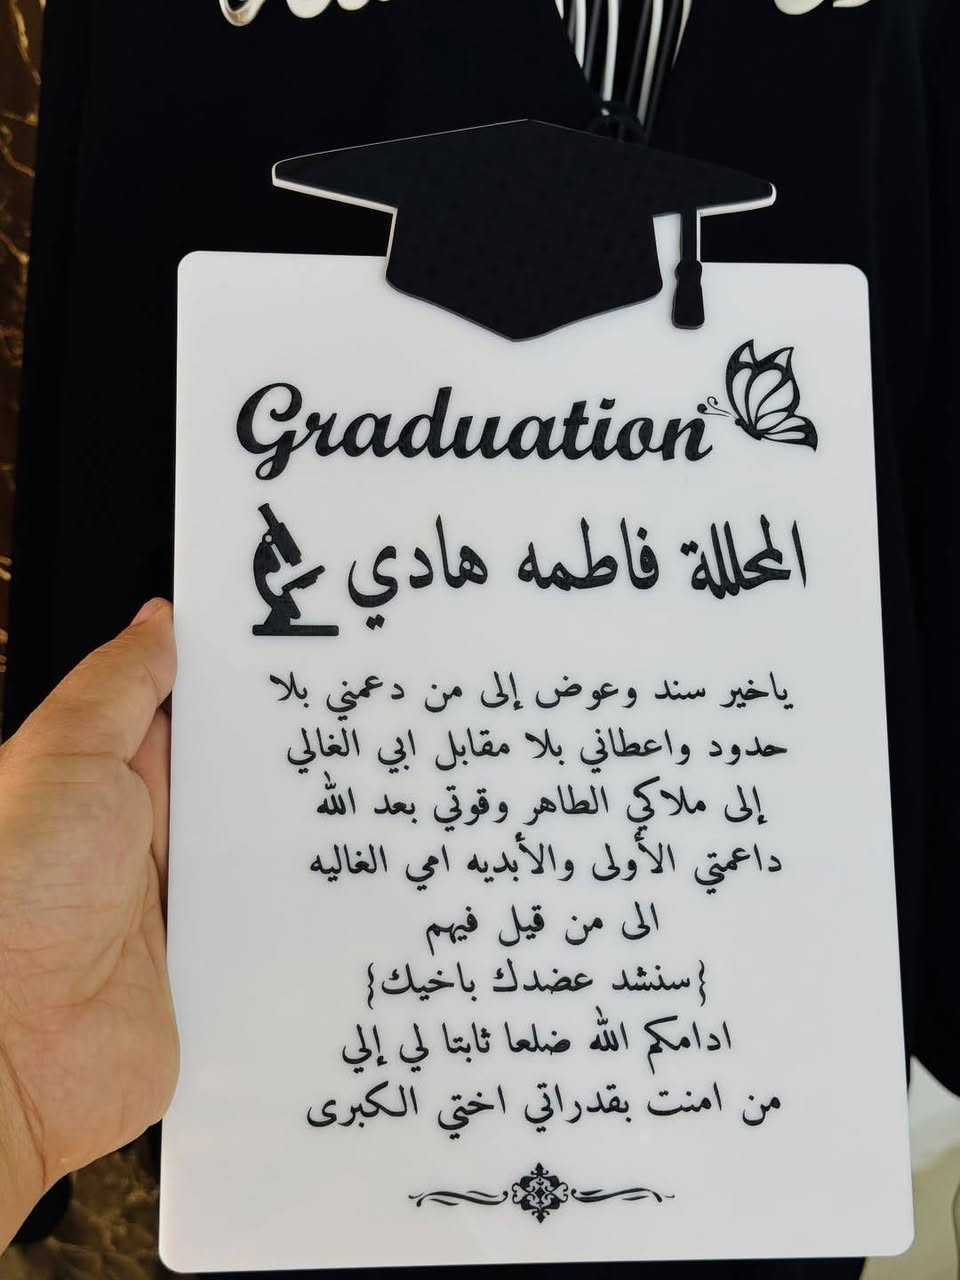 Graduation
المحللة فاطمه هادي
ياخير سند وعوض إلى من دعمني بلا
حدود واعطاني بلا مقابل ابي الغالي
إلى ملاكي الطاهر وقوتي بعد الله
داعمتي الأولى والأبديه امي الغاليه
الى من قيل فيهم
{سنشد عضدك باخيك}
ادامكم الله ضلعا ثابتا لي إلي
من امنت بقدراتي اختي الكبرى